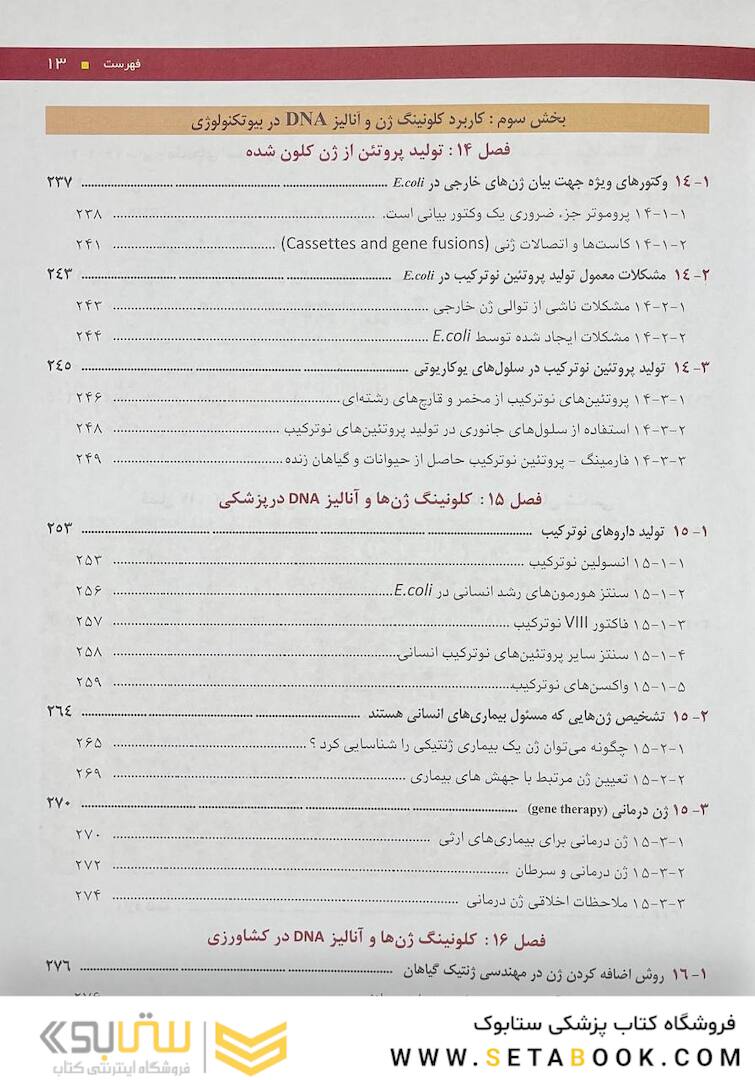 فهرست ۱۳
بخش سوم : کاربرد کلونینگ ژن و آنالیز DNA در بیوتکنولوژی
فصل ۱۴: تولید پروتئن از ژن کلون شده
۱۴-۱ وکتورهای ویژه جهت بیان ژن‌های خارجی در E.coli ۲۳۷
۱۴-۱-۱ پروموتر جزء ضروری یک وکتور بیانی است. ۲۳۸
۱۴-۱-۲ کاست‌ها و اتصالات ژنی (Cassettes and gene fusions) ۲۴۱
۱۴-۲ مشکلات معمول تولید پروتئین نوترکیب در E.coli ۲۴۳
۱۴-۲-۱ مشکلات ناشی از توالی ژن خارجی ۲۴۳
۱۴-۲-۲ مشکلات ایجاد شده توسط E.coli ۲۴۴
۱۴-۳ تولید پروتئین نوترکیب در سلول‌های یوکاریوتی ۲۴۵
۱۴-۳-۱ پروتئین‌های نوترکیب از مخمر و قارچ‌های رشته‌ای ۲۴۶
۱۴-۳-۲ استفاده از سلول‌های جانوری در تولید پروتئین‌های نوترکیب ۲۴۸
۱۴-۳-۳ فارمینگ - پروتئین نوترکیب حاصل از حیوانات و گیاهان زنده ۲۴۹
فصل ۱۵: کلونینگ ژن‌ها و آنالیز DNA درپزشکی
۱۵-۱ تولید داروهای نوترکیب ۲۵۳
۱۵-۱-۱ انسولین نوترکیب ۲۵۳
۱۵-۱-۲ سنتز هورمون‌های رشد انسانی در E.coli ۲۵۶
۱۵-۱-۳ فاکتور VIII نوترکیب ۲۵۷
۱۵-۱-۴ سنتز سایر پروتئین‌های نوترکیب انسانی ۲۵۸
۱۵-۱-۵ واکسن‌های نوترکیب ۲۵۹
۱۵-۲ تشخیص ژن‌هایی که مسئول بیماری‌های انسانی هستند ۲۶۴
۱۵-۲-۱ چگونه می‌توان ژن یک بیماری ژنتیکی را شناسایی کرد ؟ ۲۶۵
۱۵-۲-۲ تعیین ژن مرتبط با جهش های بیماری ۲۶۹
۱۵-۳ ژن درمانی (gene therapy) ۲۷۰
۱۵-۳-۱ ژن درمانی برای بیماری‌های ارثی ۲۷۰
۱۵-۳-۲ ژن درمانی و سرطان ۲۷۲
۱۵-۳-۳ ملاحظات اخلاقی ژن درمانی ۲۷۴
فصل ۱۶: کلونینگ ژن‌ها و آنالیز DNA در کشاورزی
۱۶-۱ روش اضافه کردن ژن در مهندسی ژنتیک گیاهان ۲۷۶
فروشگاه کتاب پزشکی ستابوک
WWW.SETABOOK.COM
ستابوک
فروشگاه اینترنتی کتاب